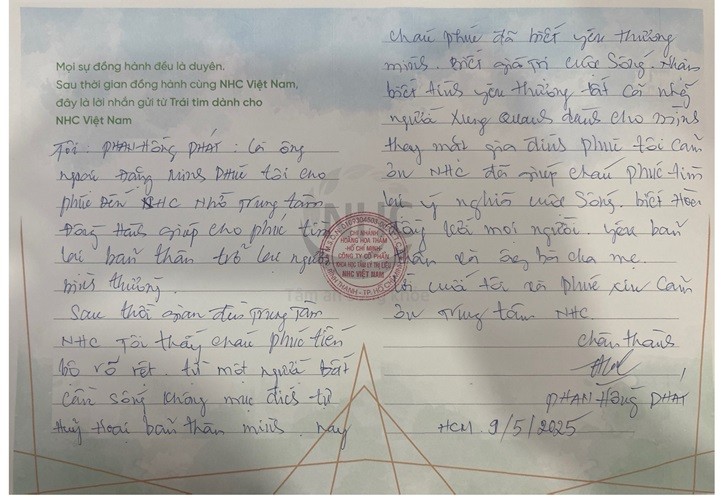 Mọi sự đồng hành đều là duyên.
Sau thời gian đồng hành cùng NHC Việt Nam,
đây là lời nhắn gửi từ Trái tim dành cho
NHC Việt Nam
Tôi: PHAN HỒNG PHÁT: là ông
ngoại Đặng Minh Phúc tôi cho
phúc đến NHC Nhờ Trung tâm
Đồng Hành giúp cho phúc tìm
lại bản thân trở lại người
bình thường.
Sau thời gian đến Trung tâm
NHC Tôi thấy cháu phúc tiến
bộ rõ rệt. từ một người bất
cần sống không mục đích tự
Huỷ Hoại bản thân mình. nay
cháu phúc đã biết yêu thương
mình. Biết giá trị cuộc Sống. thân
biết tình yêu thương tất cả những
người xung quanh dành cho mình
thay mặt gia đình phúc tôi cảm
ơn NHC đã giúp cháu phúc tìm
lại ý nghĩa cuộc Sống. biết Hoà
đồng với mọi người. yêu bản
thân và ông bà cha mẹ.
Lời cuối tôi và phúc xin Cảm
ơn trung tâm NHC.
chân thành
PHAN HỒNG PHÁT
HCM 9/5/2025
NHC
Tâm an
CHI NHÁNH
HOÀNG HOA THÁM
-HỒ CHÍ MINH-
CÔNG TY CỔ PHẦN
KHOA HỌC TÂM LÝ TRỊ LIỆU
NHC VIỆT NAM